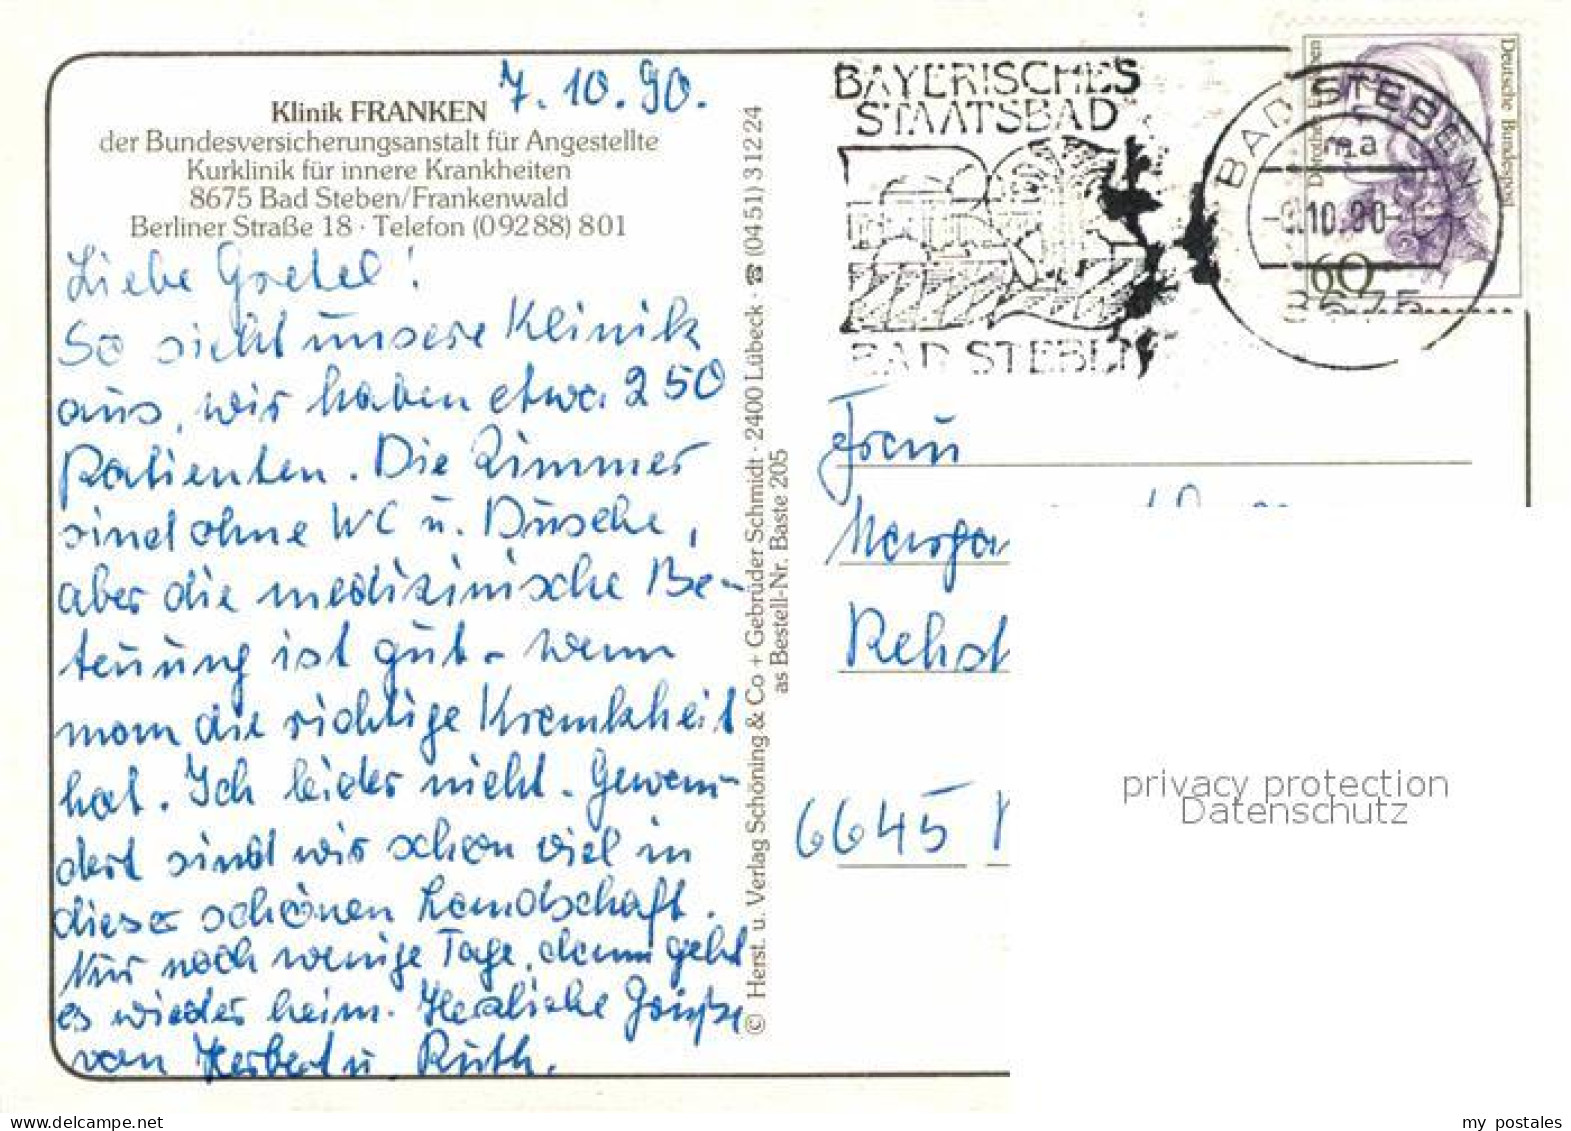 7.10.90.
Klinik FRANKEN
der Bundesversicherungsanstalt für Angestellte
Kurklinik für innere Krankheiten
8675 Bad Steben/Frankenwald
Berliner Straße 18 · Telefon (09288) 801
Liebe Gretel!
So sieht unsere Klinik
aus, wir haben etwa 250
Patienten. Die Zimmer
sind ohne WC u. Dusche,
aber die medizinische Be-
teuung ist gut - wenn
man die richtige Krankheit
hat. Ich leider nicht. Gewan-
dert sind wir schon viel in
dieser schönen Landschaft.
Nur noch wenige Tage, dann geht
es wieder heim. Herzliche Grüße
von Herbert u. Ruth.
© Herst. u. Verlag Schöning & Co + Gebrüder Schmidt · 2400 Lübeck · ☎ (0451) 31224
as Bestell-Nr. Baste 205
BAYERISCHES
STAATSBAD
BAD STEBEN
BAD STEBEN
ma
10.90
8675
Deutsche Bundespost
Dorothea Erxleben
60
Frau
Marga
Rehst
6645
privacy protection
Datenschutz
my postales
www.delcampe.net